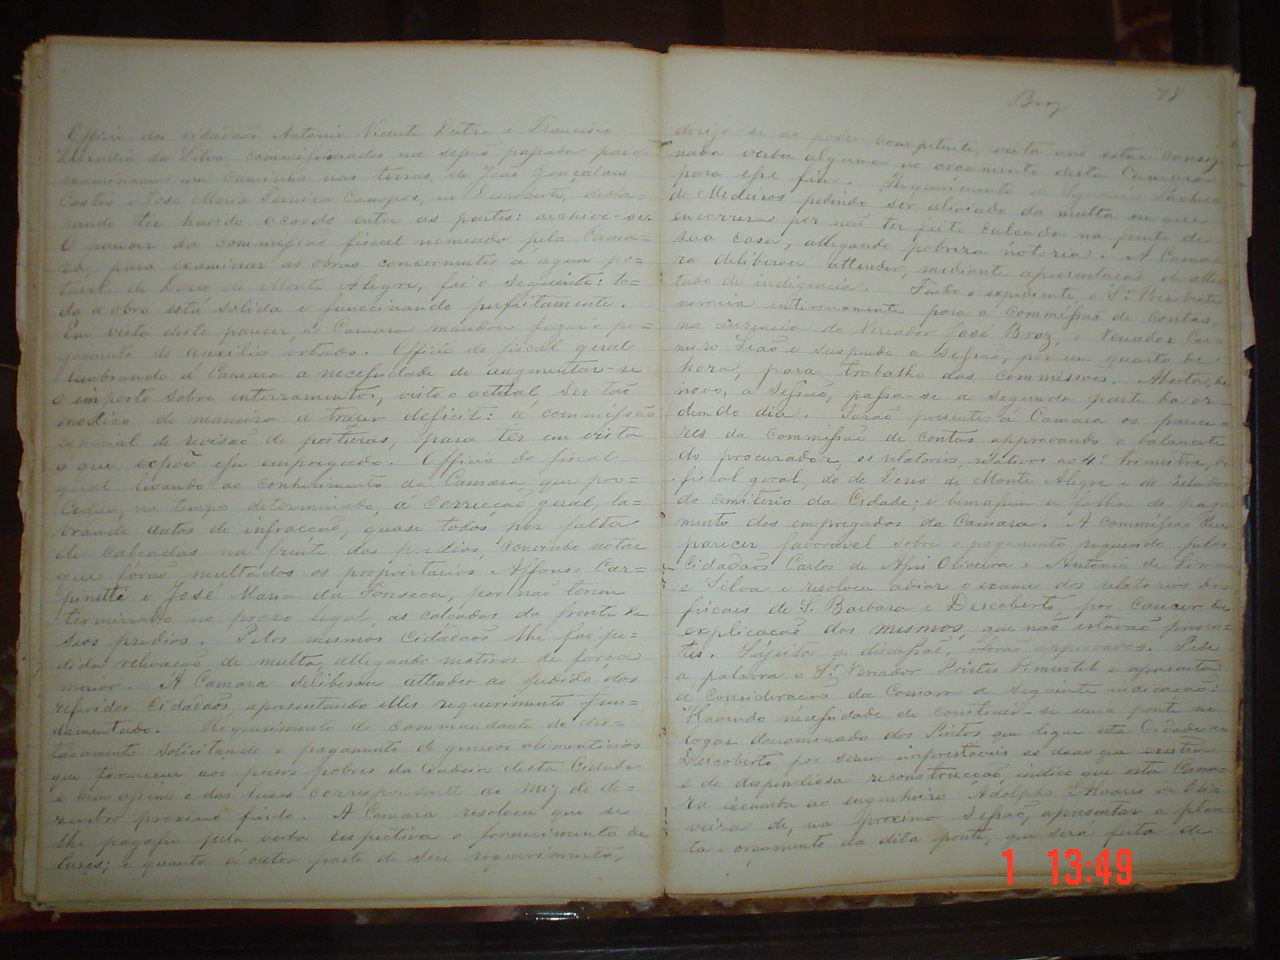 Officio dos cidadãos Antonio Vicente Dutra e Francisco
da Silva, commissionados na sessão passada para
examinarem um caminho nas terras de João Gonçalves
Castro e José Maria Ferreira Campos, no Descoberto, decla-
rando ter havido acordo entre as partes: archive-se.
O parecer da commissão fiscal nomeada pela Cama-
ra, para examinar as obras concernentes a agua po-
tavel de Dores de Monte Alegre, foi o seguinte: to-
da a obra está solida e funccionando perfeitamente.
Em vista deste parecer, a Camara mandou fazer o pa-
gamento do auxilio votado. Officio do fiscal geral
lembrando á Camara a necessidade de augmentar-se
o imposto sobre enterramentos, visto o actual ser tão
modico de maneira a trazer deficit: a commissão
especial de revisão de posturas, para ter em vista
o que expõe esse empregado. Officio do fiscal
geral levando ao conhecimento da Camara que pro-
cedeu, no tempo determinado, á correcção geral, la-
vrando autos de infracção, quase todos por falta
de calçadas na frente dos predios, convindo notar
que forão multados os proprietarios Affonso Car-
pinetti e José Maria da Fonseca, por não terem
terminado no prazo legal, as calçadas da frente de
seos predios. Pelos mesmos cidadãos lhe foi pe-
dida relevação de multa, allegando motivos de força
maior. A Camara deliberou attender ao pedido dos
referidos cidadãos, apresentando elles requerimento fun-
damentado. Requerimento do commandante do des-
tacamento solicitando o pagamento de generos alimenticios
que forneceu aos presos pobres da Cadeia desta Cidade
e bem assim o das luzes correspondente ao mez de de-
zembro proximo findo. A Camara resolveu que se
lhe pagasse pela verba respectiva o fornecimento de
luzes; e quanto a outra parte de seu requerimento,
Braz
78
dirija-se ao poder competente, visto não estar consig-
nada verba alguma no orçamento desta Camara
para esse fim. Requerimento de Ignacio Pacheco
de Medeiros pedindo ser aliviado da multa em que
encorrera por não ter feito calçada na frente de
sua casa, allegando pobreza notoria. A Cama-
ra deliberou attender, mediante apresentação de attes-
tado de indigencia. Findo o expediente, o Sr. Presidente
nomeia interinamente para a Commissão de contas,
na ausencia do Vereador José Braz, o Vereador Casi-
miro Leão e suspende a sessão, por um quarto de
hora, para trabalho das commissões. Aberta, de
novo, a Sessão, passa-se a segunda parte da or-
dem do dia. Forão presentes á Camara os parece-
res da Commissão de contas approvando o balancete
do procurador, os relatorios, relativos ao 4º trimestre, do
fiscal geral, do de Dores de Monte Alegre e do zelador
do cemiterio da Cidade; e bem assim a folha de paga-
mento dos empregados da Camara. A commissão deu
parecer favoravel sobre o pagamento requerido pelos
Cidadãos Carlos de Assis Oliveira e Antonio de Lima
e Silva e resolveu adiar o exame dos relatorios dos
fiscaes de S. Barbara e Descoberto, por carecer de
explicação dos mesmos, que não estavão presen-
tes. Sujeito a discussão, forão approvados. Pede
a palavra o Sr. Vereador Pimentel e apresenta
á consideração da Camara a seguinte indicação:
"Havendo necessidade de construir-se uma ponte no
logar denominado dos Pintos, que ligue esta Cidade ao
Descoberto, por serem imprestaveis as duas que existem
e de dispendiosa reconstrucção, indico que esta Cama-
ra incumba ao engenheiro Adolpho Alvares de Oli-
veira de, na proxima Sessão, apresentar a plan-
ta e orçamento da dita ponte, que será feita de
1 13:49